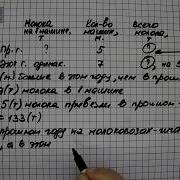 Молока Кол-во Всего
на 1 машине, машин, молока,
т м. т
Пр. г. ? 5 ?
Этот г. одинак. 7 ?, на 5
(м.) больше в этом году, чем в прош
(т) молока в 1 машине
5 (т) молока привезли в прошлом
= 133 (т)
прошлом году на молоковозах
, а в этом